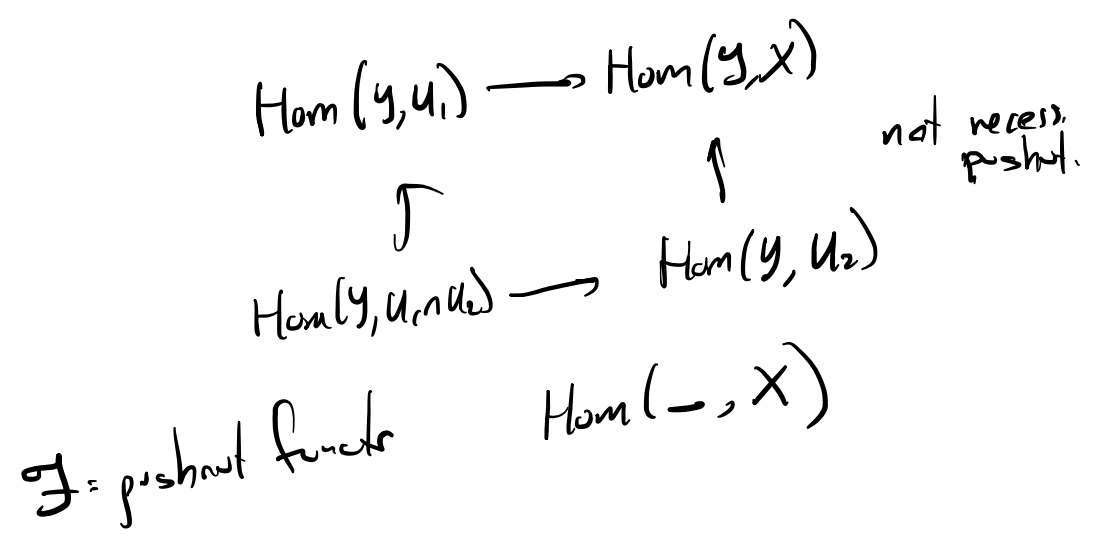 Hom(y,u₁) ⟶ Hom(y,X)
not necess.
pushout.
↑ ↑
Hom(y,u₁∩u₂) ⟶ Hom(y,u₂)
Hom(–,X)
ℱ = pushout functr